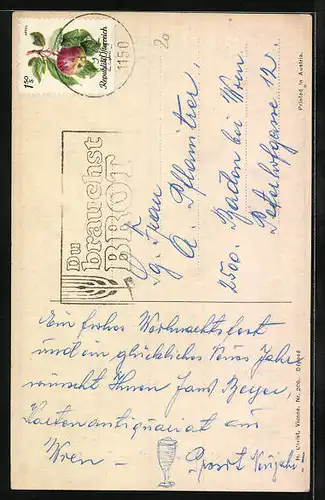 1.50 S
APFEL
Republik Österreich
1150
20
Du
brauchst
BROT
g. Frau
A. Pflamitzer
2500. Baden bei Wien
12.
Printed in Austria.
Ein frohes Weihnachtsfest
und ein glückliches Neues Jahr
wünscht Ihnen Beyer,
Kartenantiquariat aus
Wien —
Prosit Neujahr!
Vienne. Nr. 200.